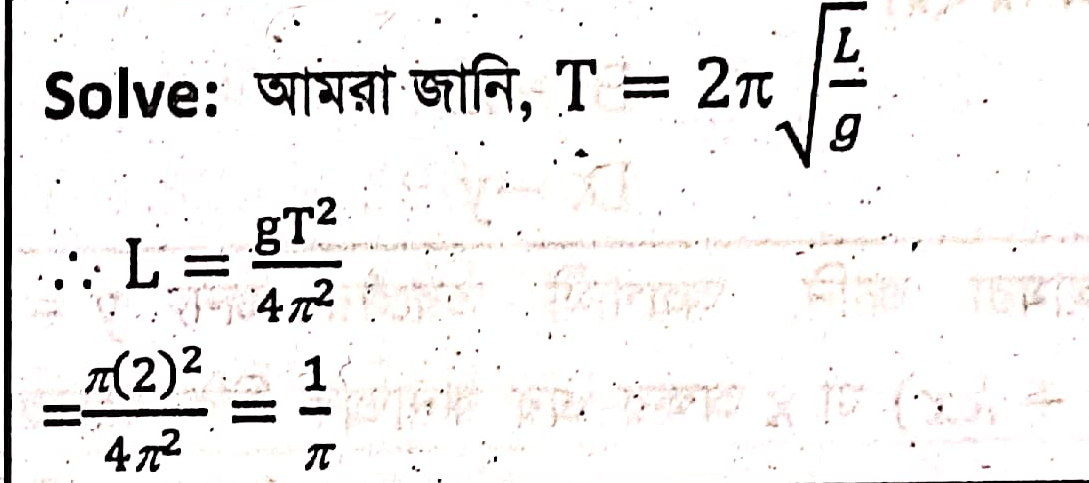 Solve: আমরা জানি, T = 2π√(L/g)
∴ L = gT²/4π²
= π(2)²/4π² = 1/π